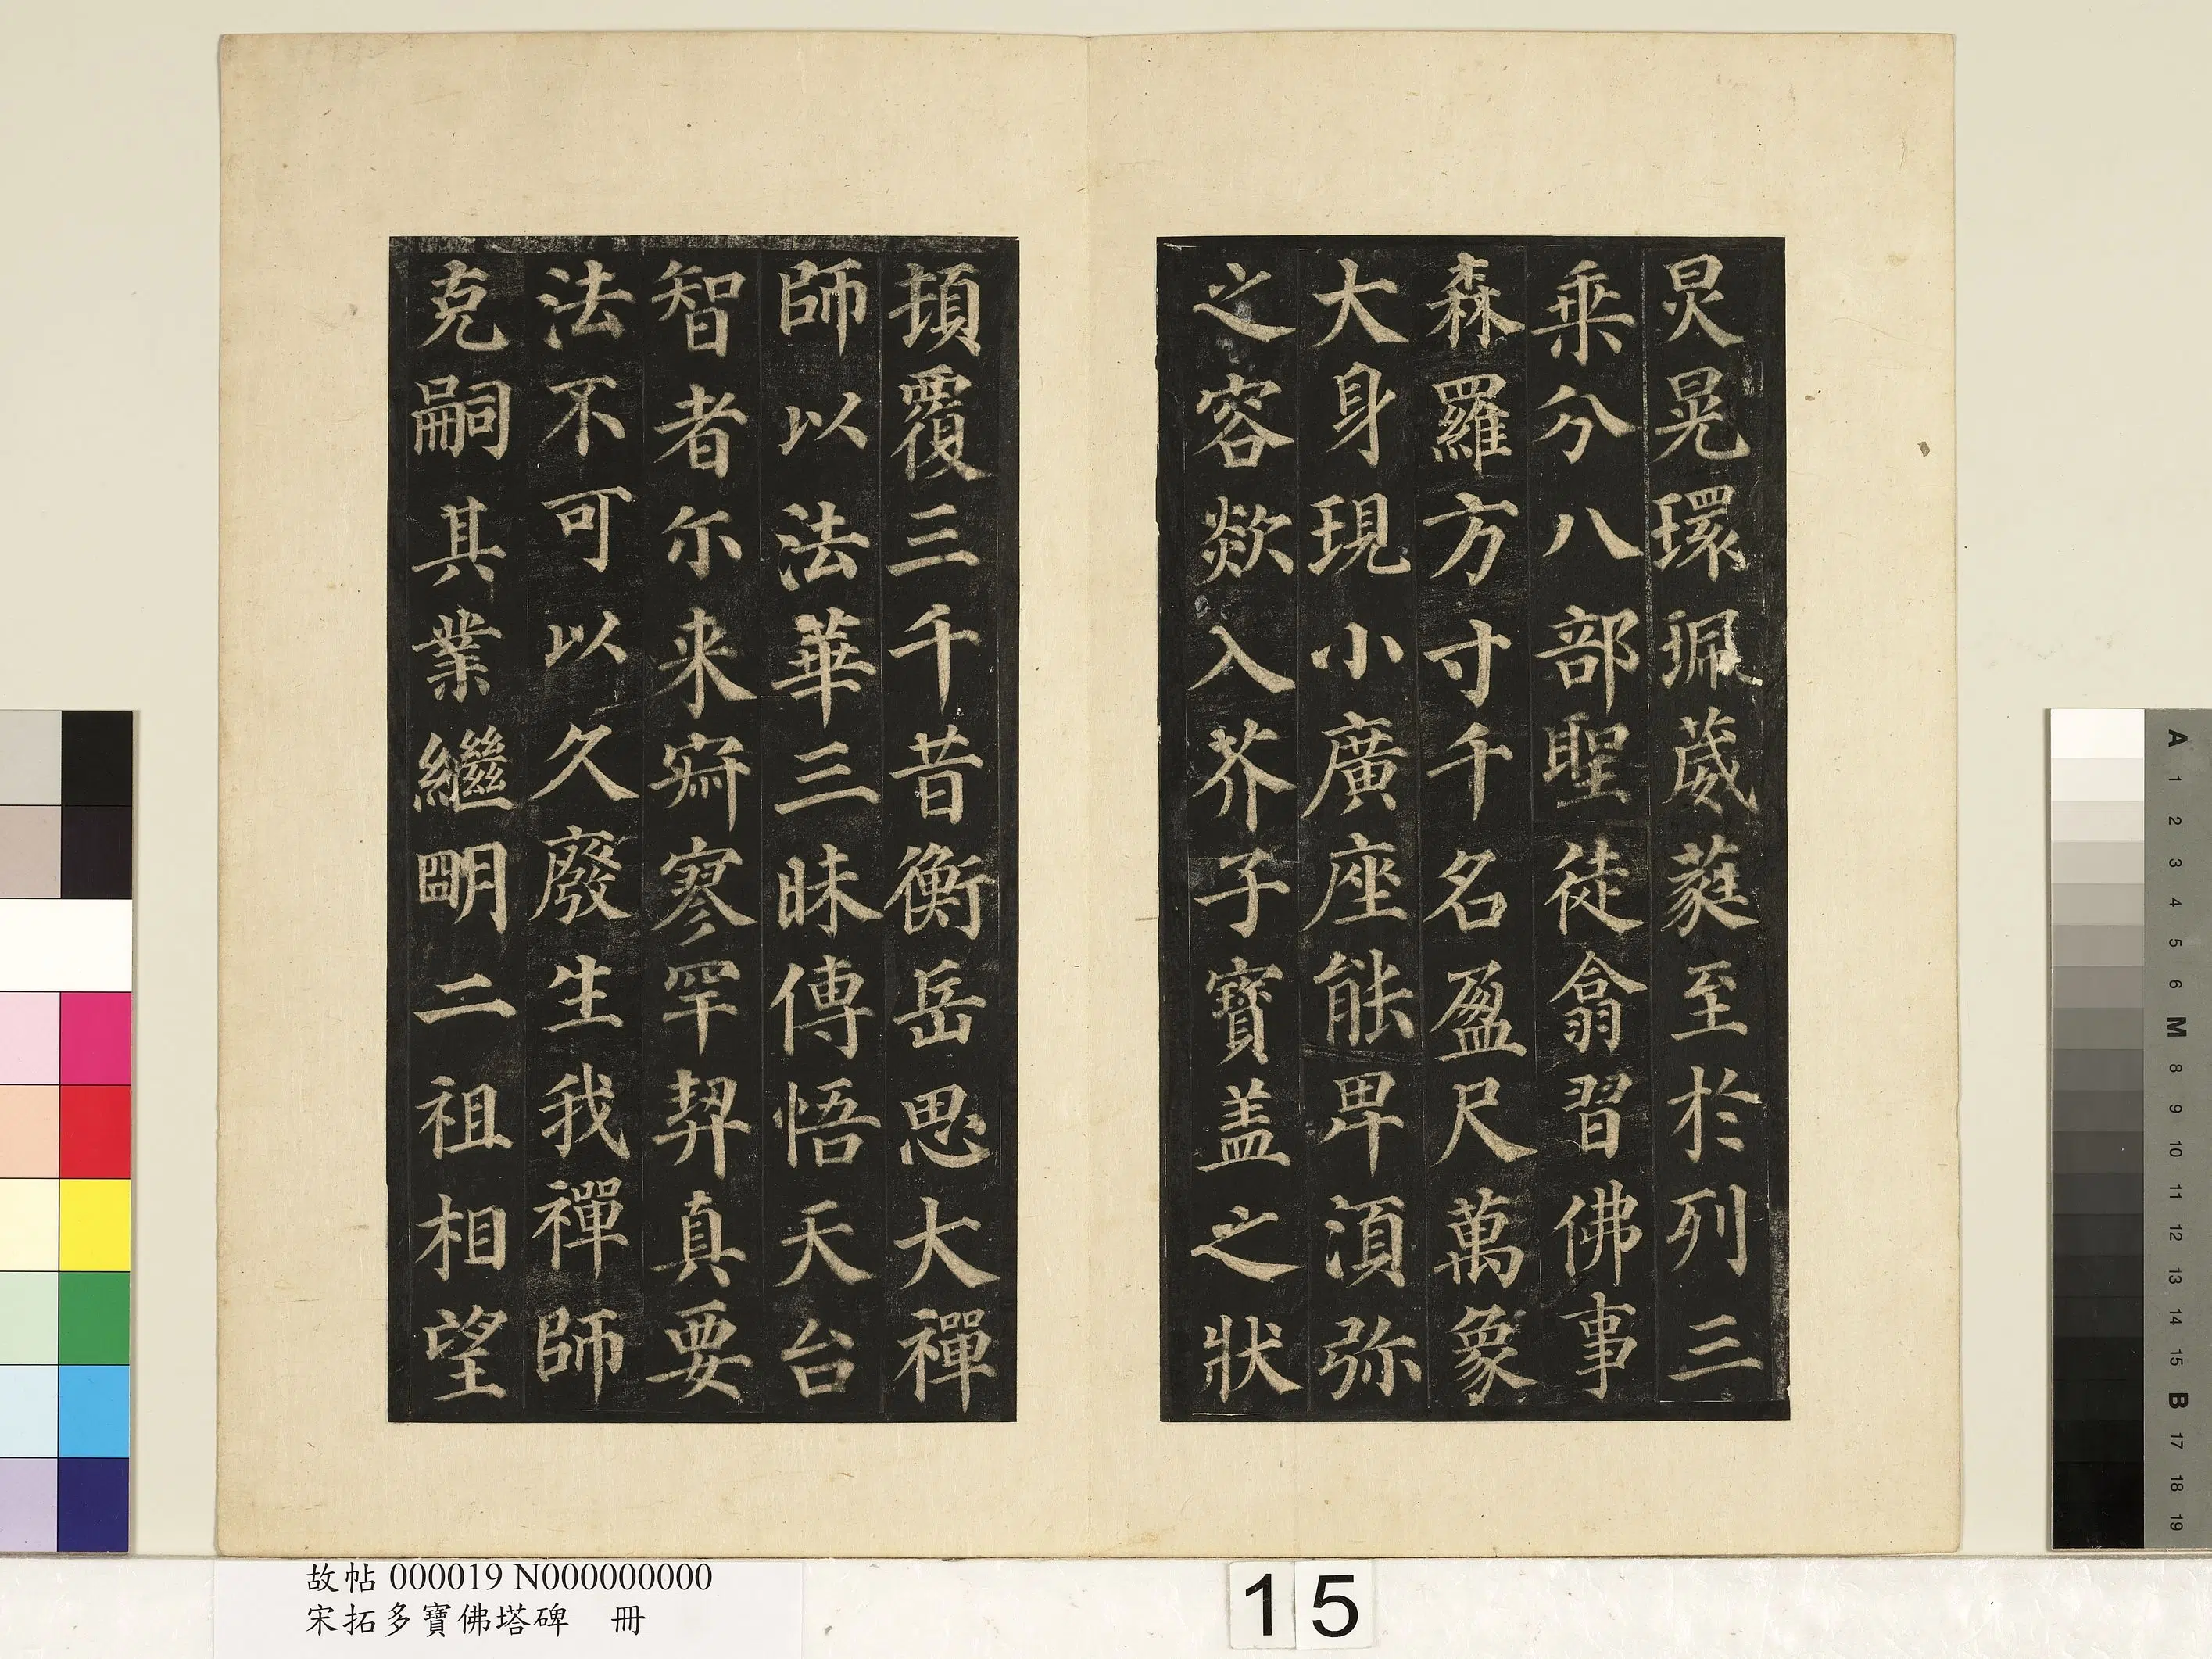 炅晃環珮葳蕤至於列三
乘分八部聖徒翕習佛事
森羅方寸千名盈尺萬象
大身現小廣座能卑須弥
之容欻入芥子寶盖之狀
頓覆三千昔衡岳思大禪
師以法華三昧傳悟天台
智者尓来寂寥罕契真要
法不可以久廢生我禪師
克嗣其業繼明二祖相望
故帖 000019 N000000000
宋拓多寶佛塔碑 冊
15
A
1
2
3
4
5
6
M
8
9
10
11
12
13
14
15
B
17
18
19